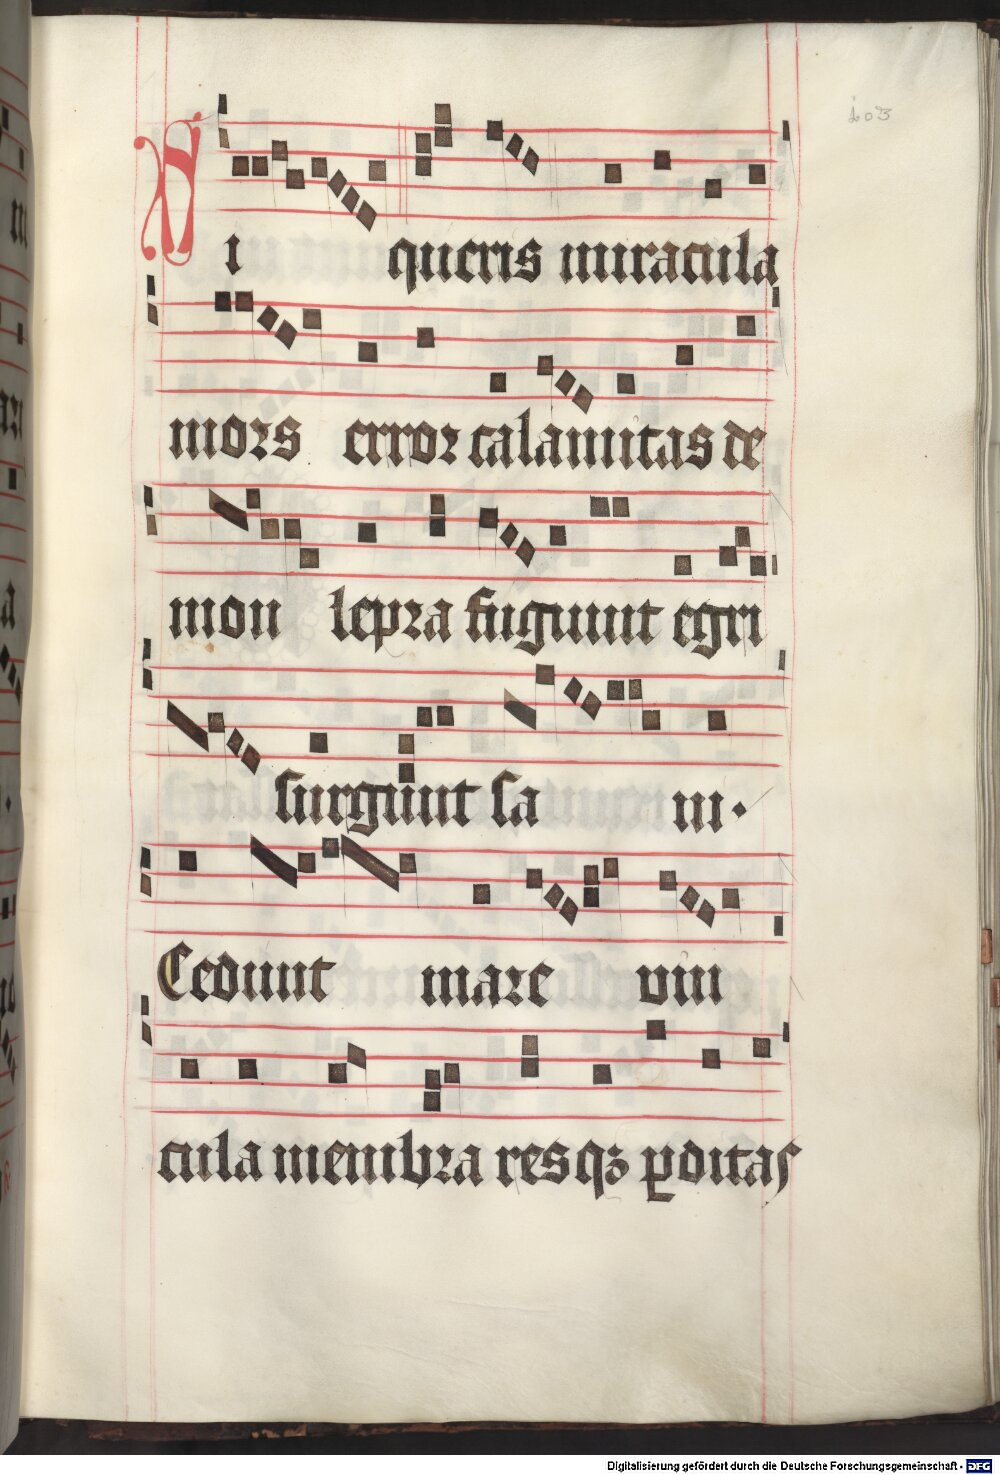 103
Si queris miracula
mors error calamitas de
mon lepra fugiunt egri
surgunt sa ni.
Cedunt mare vin
cula membra resqꝫ ꝑditas
Digitalisierung gefördert durch die Deutsche Forschungsgemeinschaft - DFG